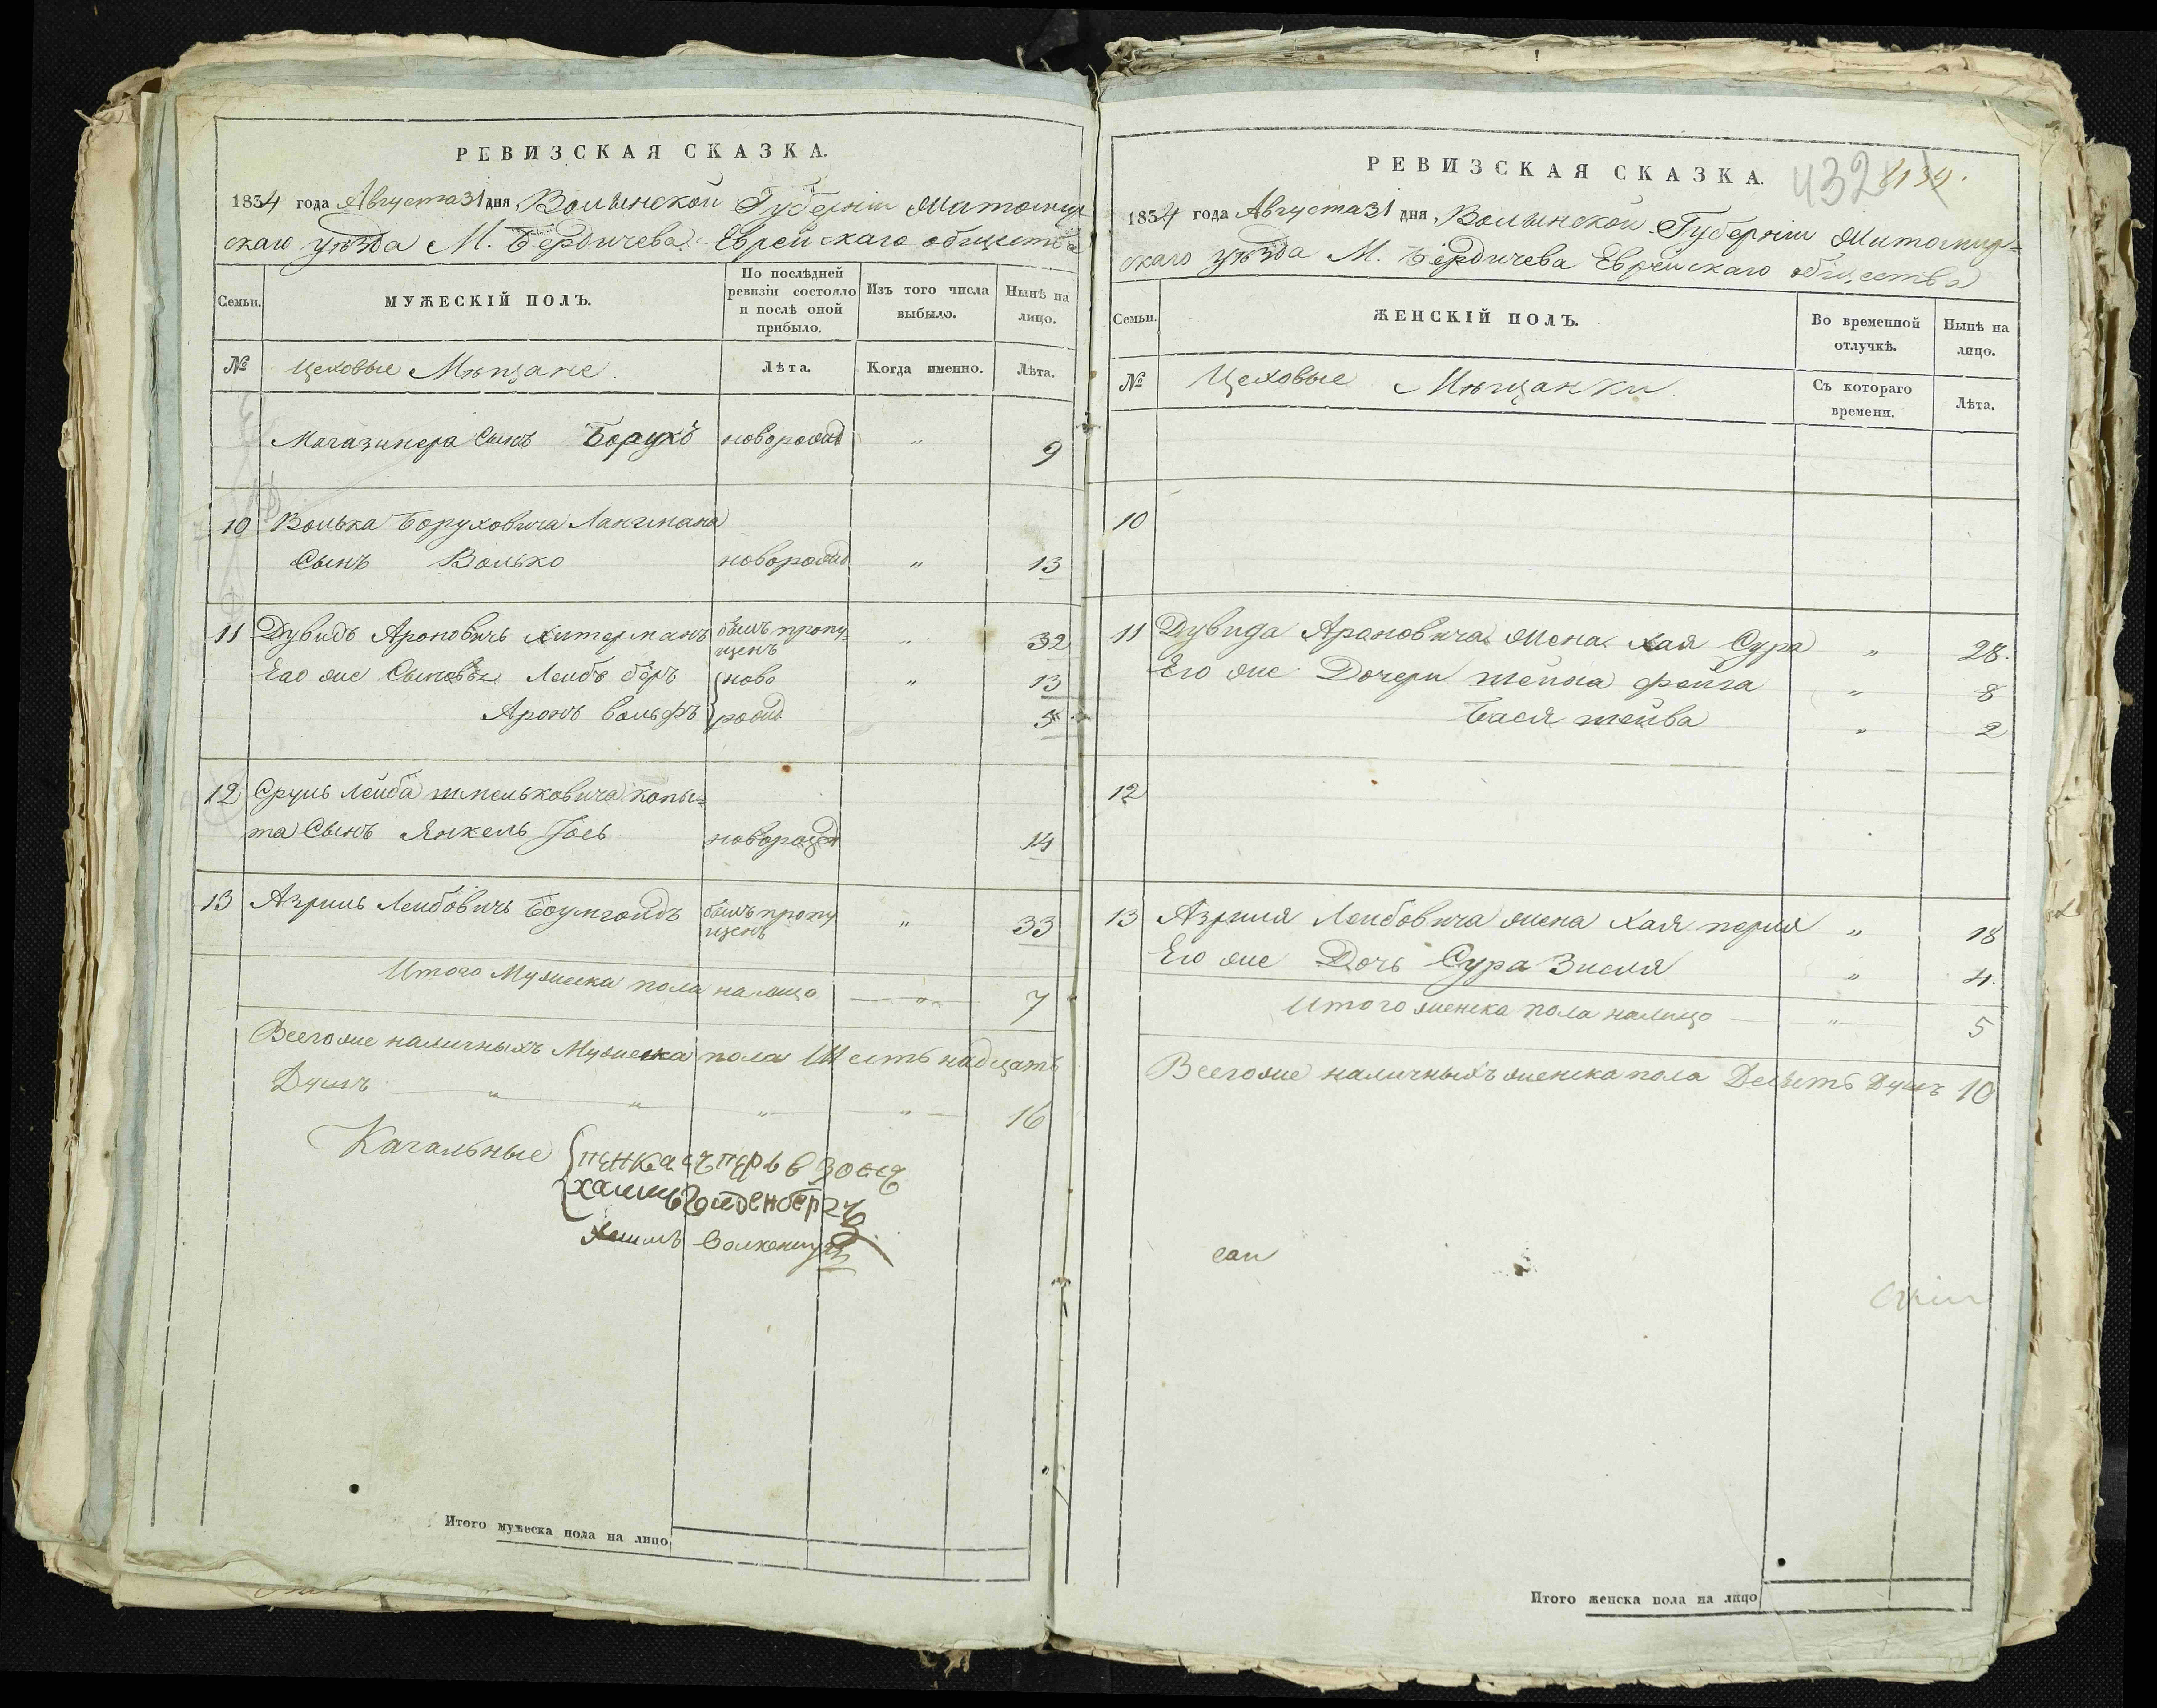 РЕВИЗСКАЯ СКАЗКА.
1834 года Августа 31 дня, Волынской Губерніи Житомир
скаго уѣзда М. Бердичева Еврейскаго общества
Семьи.
МУЖЕСКІЙ ПОЛЪ.
По послѣдней ревизіи состояло и послѣ оной прибыло.
Изъ того числа выбыло.
Нынѣ на лицо.
№ Цеховые Мѣщане. Лѣта. Когда именно. Лѣта.
Магазинера Сынъ Борухъ новорожд „ 9
10 Волька Боруховича
Сынъ Волько новорожд „ 13
11 Дувидъ Ароновичъ Хитерманъ былъ пропу- „ 32
щенъ
Его же Сыновья Лейбъ беръ ново „ 13
Аронъ вольфъ рожд 5
12 Сруль Лейба шмельковича копы=
та Сынъ Янкель Іось новорожд 14
13 Азриль Лейбовичъ Боумголдъ былъ пропу „ 33
щенъ
Итого Мужеска пола налицо „ 7
Всего же наличныхъ Мужеска пола Шестьнадцать
Душъ „ „ „ „ 16
Кагальные
хаимъ Голденбергъ
Итого мужеска пола на лицо
РЕВИЗСКАЯ СКАЗКА.
432
1834 года Августа 31 дня, Волынской Губерніи Житомир=
скаго уѣзда М. Бердичева Еврейскаго общества
Семьи.
ЖЕНСКІЙ ПОЛЪ.
Во временной отлучкѣ.
Нынѣ на лицо.
№ Цеховые Мѣщанки. Съ котораго времени. Лѣта.
10
11 Дувида Ароновича жена Хая Сура „ 28.
Его же Дочери шейна фейга „ 8
Бася шейва „ 2
12
13 Азриля Лейбовича жена Хая перля „ 18
Его же Дочь Сура Зисля „ 4.
Итого женска пола налицо „ 5
Всего же наличныхъ женска пола Десять Душъ 10
Итого женска пола на лицо